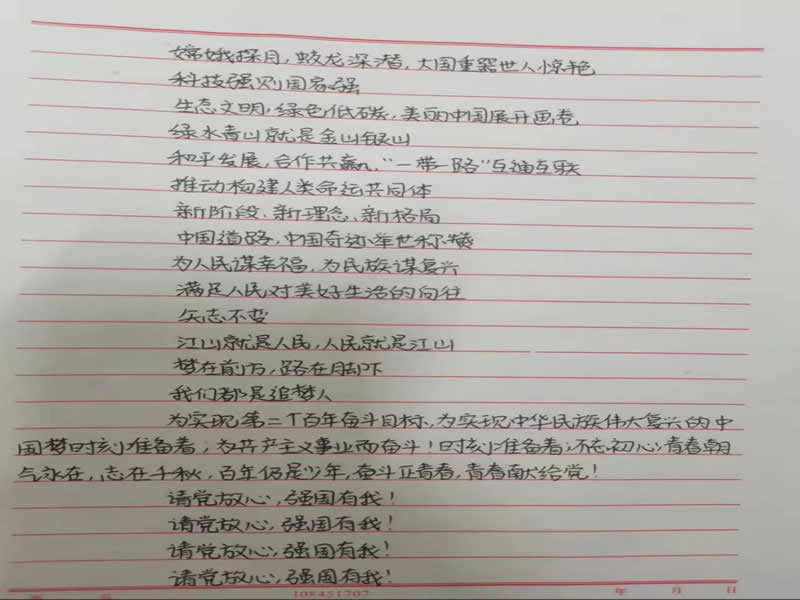 嫦娥探月，蛟龙深潜，大国重器世人惊艳
科技强则国家强
生态文明，绿色低碳，美丽中国展开画卷
绿水青山就是金山银山
和平发展，合作共赢，“一带一路”互通互联
推动构建人类命运共同体
新阶段、新理念、新格局
中国道路，中国奇迹举世称赞
为人民谋幸福，为民族谋复兴
满足人民对美好生活的向往
矢志不变
江山就是人民，人民就是江山
梦在前方，路在脚下
我们都是追梦人
为实现第二个百年奋斗目标，为实现中华民族伟大复兴的中
国梦时刻准备着；为共产主义事业而奋斗！时刻准备着；不忘初心青春朝
气永在，志在千秋，百年仍是少年，奋斗正青春，青春献给党！
请党放心，强国有我！
请党放心，强国有我！
请党放心，强国有我！
请党放心，强国有我！
108451707 年 月 日